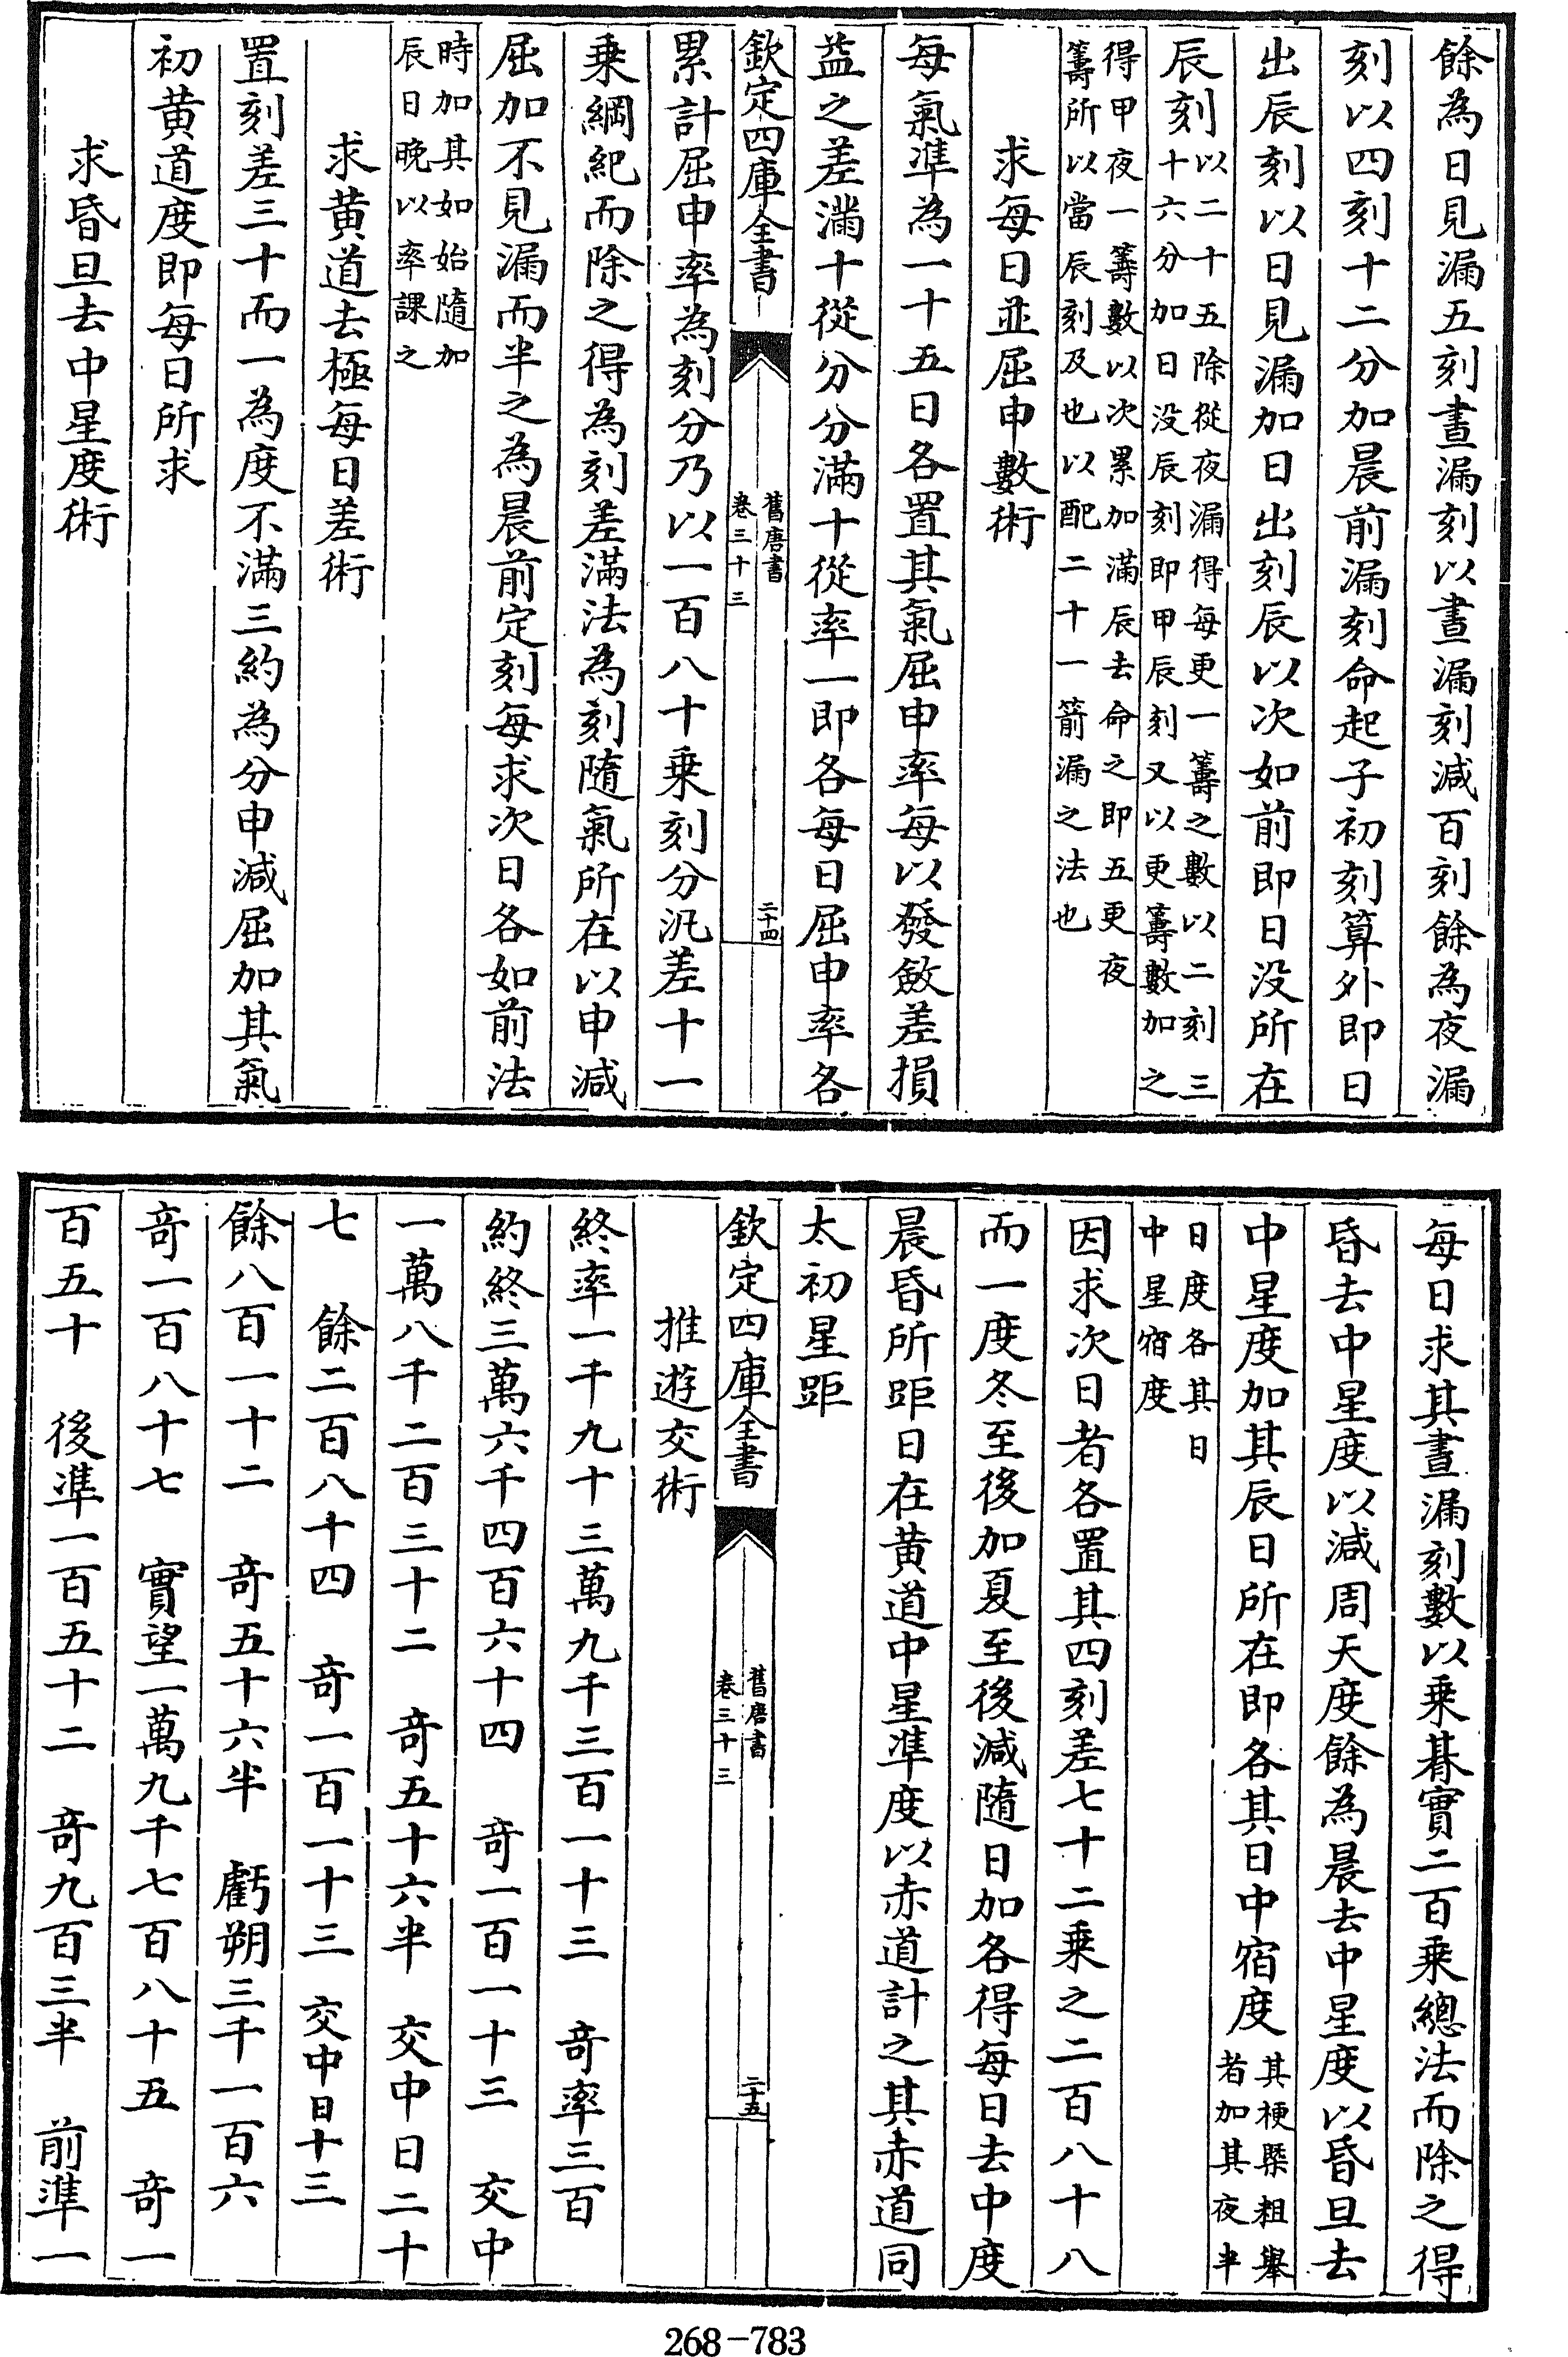 餘為日見漏五刻晝漏刻以晝漏刻減百刻餘為夜漏
刻以四刻十二分加晨前漏刻命起子初刻算外即日
出辰刻以日見漏加日出刻辰以次如前即日没所在
辰刻以二十五除從夜漏得每更一籌之數以二刻三
十六分加日没辰刻即甲辰刻又以更籌數加之
得甲夜一籌數以次累加滿辰去命之即五更夜
籌所以當辰刻及也以配二十一箭漏之法也
求每日並屈申數術
每氣準為一十五日各置其氣屈申率每以發斂差損
益之差滿十從分分滿十從率一即各每日屈申率各
欽定四庫全書
舊唐書
卷三十三
二十四
累計屈申率為刻分乃以一百八十乗刻分汎差十一
乗綱紀而除之得為刻差滿法為刻隨氣所在以申減
屈加不見漏而半之為晨前定刻每求次日各如前法
時加其如始隨加
辰日晚以率課之
求黄道去極每日差術
置刻差三十而一為度不滿三約為分申減屈加其氣
初黄道度即每日所求
求昏旦去中星度術
每日求其晝漏刻數以乗朞實二百乗總法而除之得
昏去中星度以減周天度餘為晨去中星度以昏旦去
中星度加其辰日所在即各其日中宿度其梗槩粗舉
者加其夜半
日度各其日
中星宿度
因求次日者各置其四刻差七十二乗之二百八十八
而一度冬至後加夏至後減隨日加各得每日去中度
晨昏所距日在黄道中星準度以赤道計之其赤道同
太初星距
欽定四庫全書
舊唐書
卷三十三
二十五
推遊交術
終率一千九十三萬九千三百一十三 奇率三百
約終三萬六千四百六十四 奇一百一十三 交中
一萬八千二百三十二 奇五十六半 交中日二十
七 餘二百八十四 奇一百一十三 交中日十三
餘八百一十二 奇五十六半 虧朔三千一百六
奇一百八十七 實望一萬九千七百八十五 奇一
百五十 後準一百五十二 奇九百三半 前準一
268-783